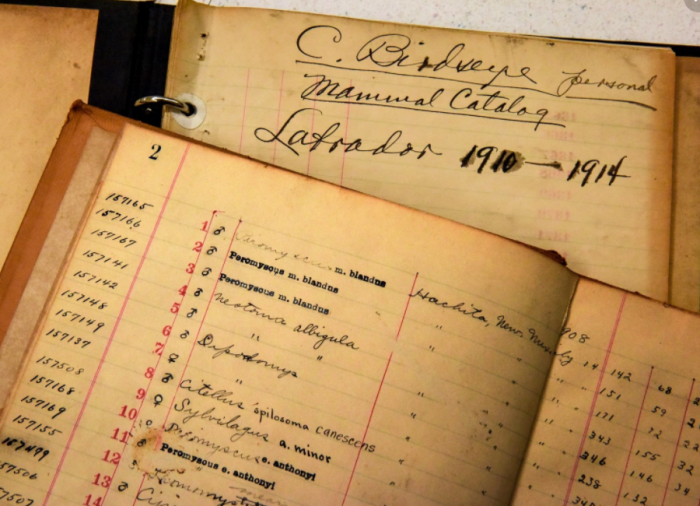 C. Birdseye personal
Mammal Catalog
Labrador 1910 — 1914
2
157165 1 ♂ Peromyscus m. blandus Hachita, New Mexico
157166 2 ♂ Peromyscus m. blandus " "
157167 3 ♂ Peromyscus m. blandus " "
157141 4 ♂ Neotoma albigula " "
157142 5 ♂ " " " "
157148 6 ♂ Dipodomys
157149 7 ♀ "
157137 8 ♂ Citellus spilosoma canescens
157508 9 ♀ Sylvilagus a. minor
157168 10 Peromyscus e. anthonyi
157169 11 Peromyscus e. anthonyi
157155 12
157499 13 ♂
157506 14
157507
908
14 142 68
151 59
171 72
343 155 32
346 146 34
238 132